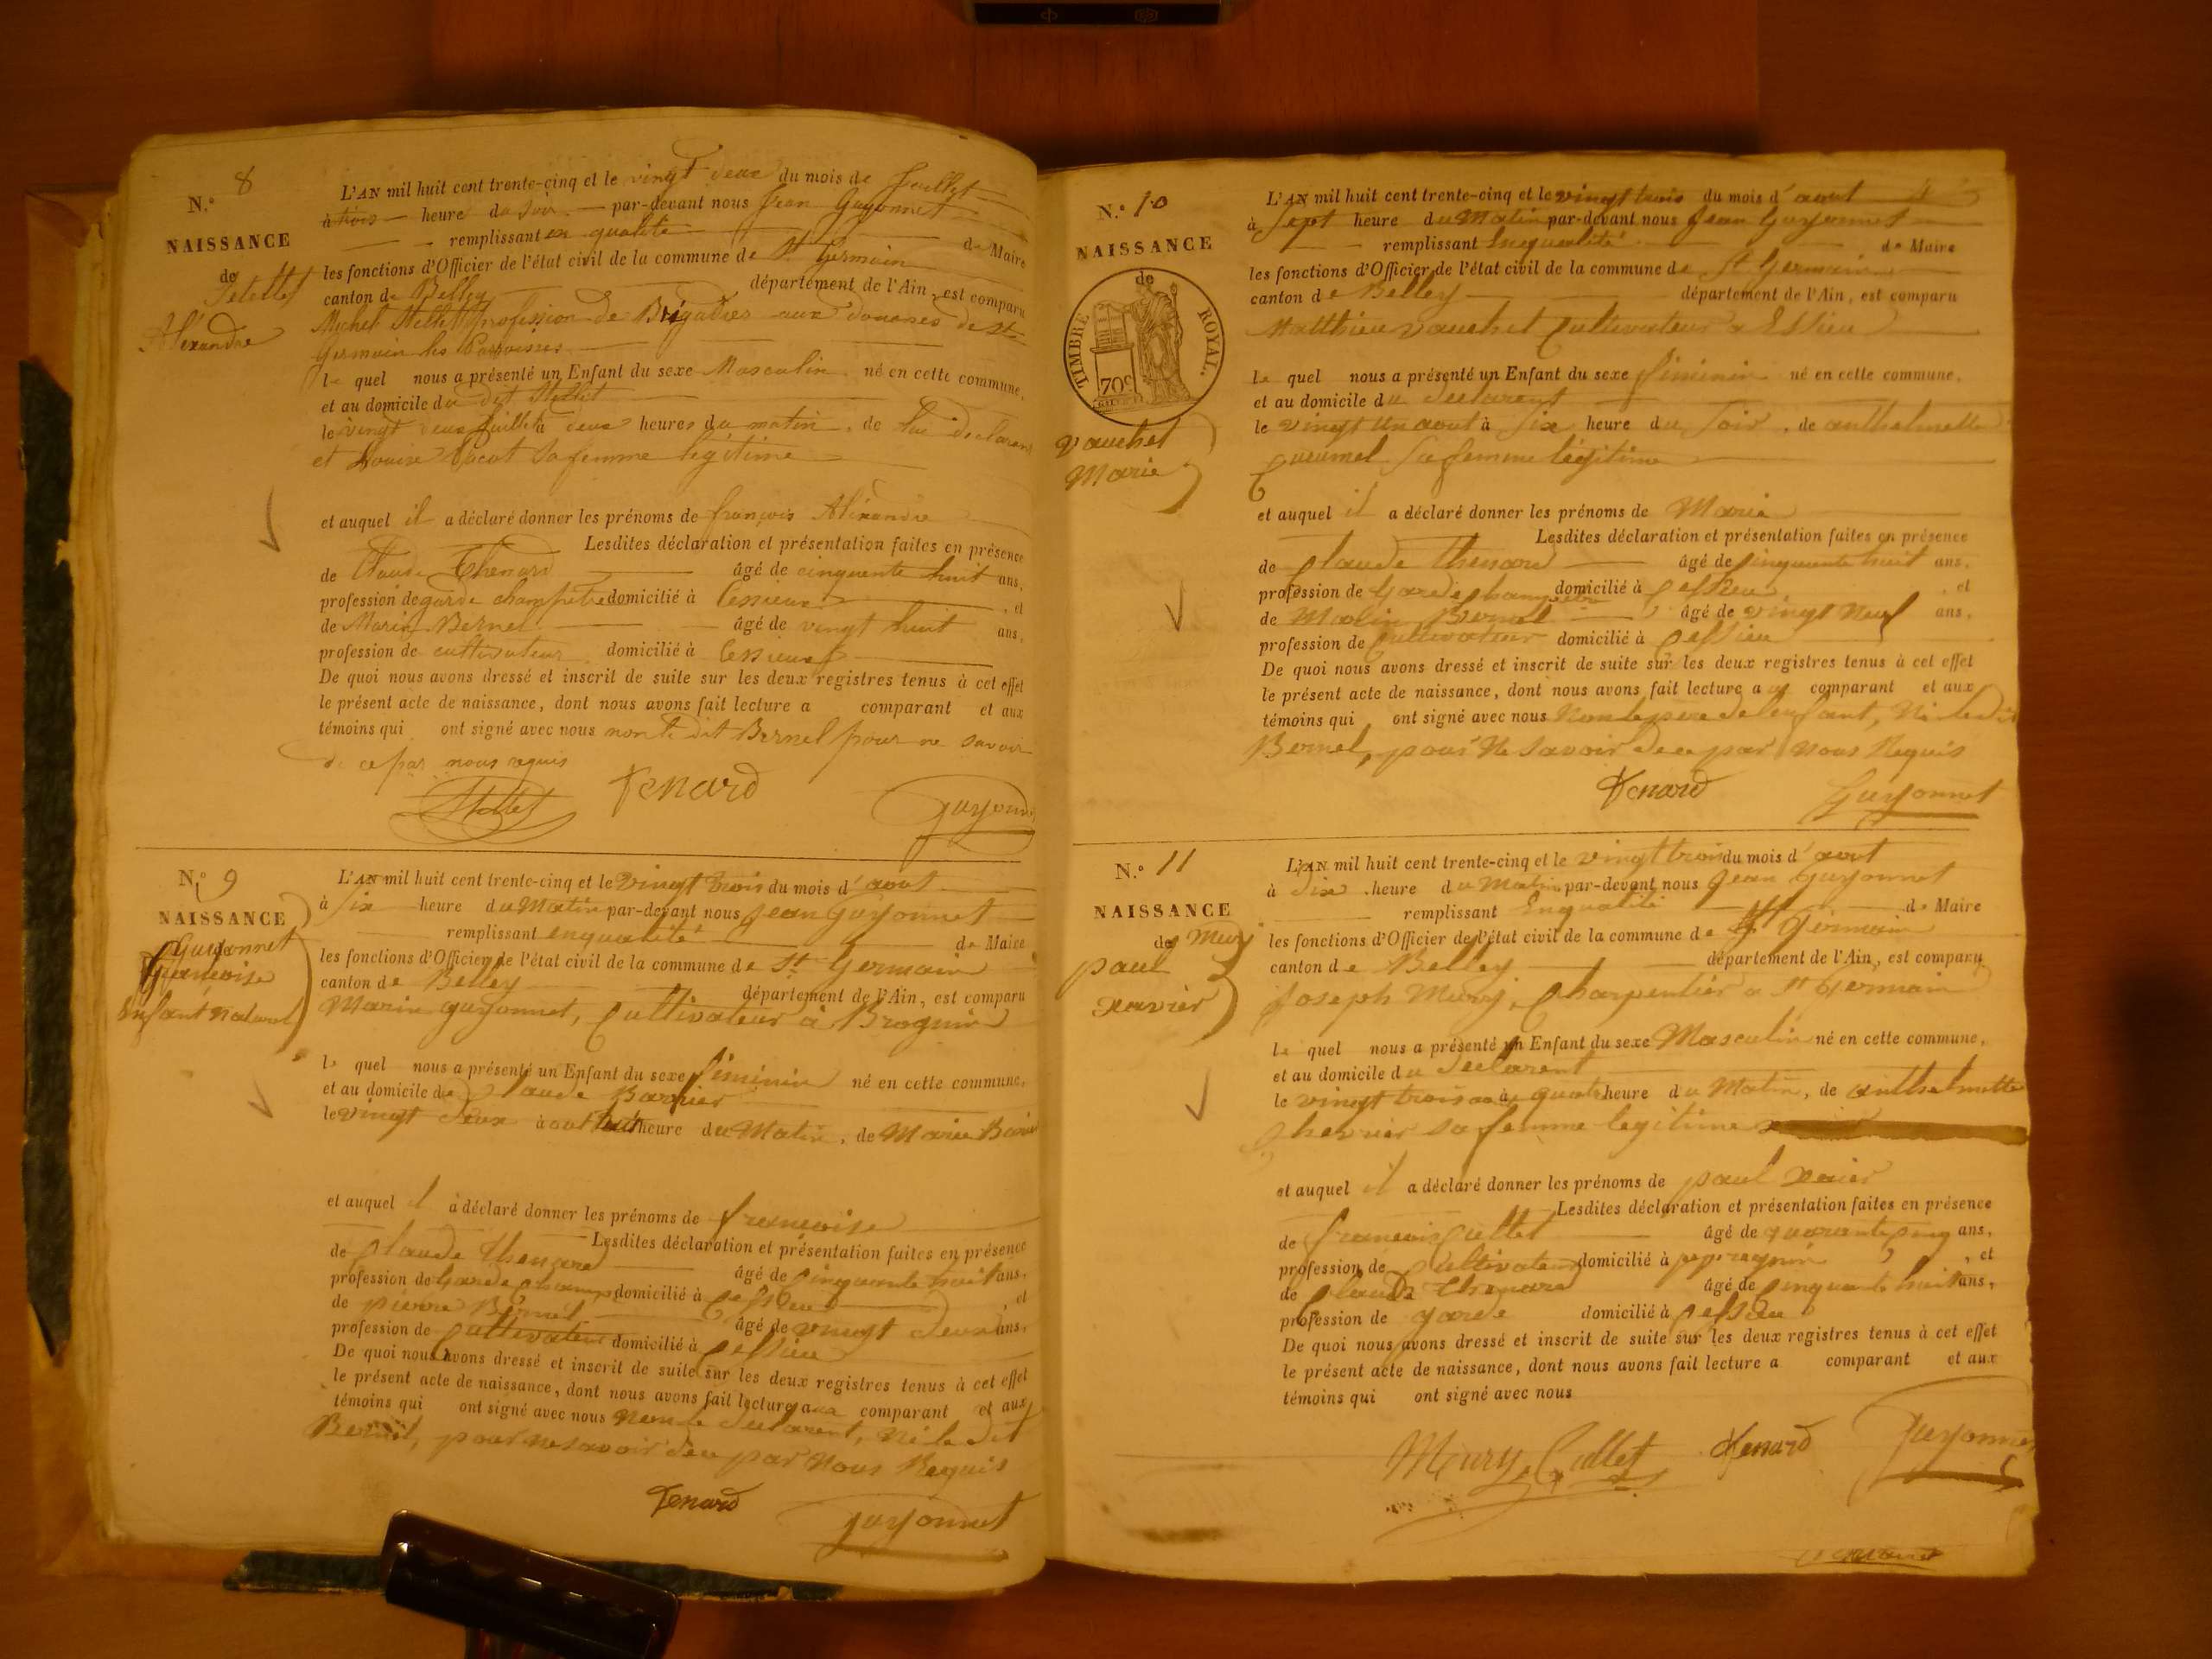 N.º 8
NAISSANCE
de
Alexandre
L'AN mil huit cent trente-cinq et le vingt deux du mois de Juillet
à trois heure du Soir par-devant nous Jean Guyonnet
remplissant en qualité de Maire
les fonctions d'Officier de l'état civil de la commune de St Germain
canton de Belley département de l'Ain, est comparu
Michel profession de Brigadier aux douanes de St
Germain les Paroisses
le quel nous a présenté un Enfant du sexe Masculin né en cette commune,
et au domicile du dit
le vingt deux Juillet à deux heures du matin, de lui déclarant
et Louise sa femme légitime
et auquel il a déclaré donner les prénoms de françois Alexandre
Lesdites déclaration et présentation faites en présence
de Claude Thenard âgé de cinquante huit ans,
profession de garde champêtre domicilié à Cessieux, et
de Marin Bernel âgé de vingt huit ans,
profession de cultivateur domicilié à Cessieux
De quoi nous avons dressé et inscrit de suite sur les deux registres tenus à cet effet
le présent acte de naissance, dont nous avons fait lecture a comparant et aux
témoins qui ont signé avec nous non le dit Bernel pour ne savoir
de ce par nous requis
Tenard
Guyonnet
N.º 9
NAISSANCE
Guyonnet
françoise
Enfant Naturel
L'AN mil huit cent trente-cinq et le vingt trois du mois d'aout
à Six heure du Matin par-devant nous Jean Guyonnet
remplissant enqualité de Maire
les fonctions d'Officier de l'état civil de la commune de St Germain
canton de Belley département de l'Ain, est comparu
Marin guyonnet, Cultivateur à Brognin
le quel nous a présenté un Enfant du sexe féminin né en cette commune,
et au domicile de Claude Barbier
le vingt deux aout huit heure du Matin, de Marie
et auquel il a déclaré donner les prénoms de françoise
Lesdites déclaration et présentation faites en présence
de Claude Thenard âgé de Cinquante huit ans,
profession de Garde Champ domicilié à Cessieu, et
de pierre Bernel âgé de vingt deux ans,
profession de Cultivateur domicilié à Cessieu
De quoi nous avons dressé et inscrit de suite sur les deux registres tenus à cet effet
le présent acte de naissance, dont nous avons fait lecture aux comparant et aux
témoins qui ont signé avec nous Non le déclarent, Ni le dit
Bernel, pour ne savoir dece par Nous Requis
Tenard
guyonnet
N.º 10
NAISSANCE
de
TIMBRE ROYAL.
70c
Vauchet
Marie
L'AN mil huit cent trente-cinq et le vingt trois du mois d'aout
à Sept heure du Matin par-devant nous Jean Guyonnet
remplissant Enqualité de Maire
les fonctions d'Officier de l'état civil de la commune de St Germain
canton de Belley département de l'Ain, est comparu
Matthieu Vauchet Cultivateur a Essieu
le quel nous a présenté un Enfant du sexe féminin né en cette commune,
et au domicile du declarent
le vingt un aout à Six heure du Soir, de anthelmette
sa femme légitime
et auquel il a déclaré donner les prénoms de Marie
Lesdites déclaration et présentation faites en présence
de Claude Thenard âgé de Cinquante huit ans,
profession de Garde champetre domicilié à Cessieu, et
de Marin Bernel âgé de vingt Neuf ans,
profession de Cultivateur domicilié à Cessieu
De quoi nous avons dressé et inscrit de suite sur les deux registres tenus à cet effet
le présent acte de naissance, dont nous avons fait lecture au comparant et aux
témoins qui ont signé avec nous Non le pere de lenfant, Ni le dit
Bernel, pour Ne Savoir dece par Nous Requis
Tenard
Guyonnet
N.º 11
NAISSANCE
de Mury
paul
Xavier
L'AN mil huit cent trente-cinq et le vingt trois du mois d'aout
à dix heure du Matin par-devant nous Jean Guyonnet
remplissant Enqualité de Maire
les fonctions d'Officier de l'état civil de la commune de St Germain
canton de Belley département de l'Ain, est comparu
Joseph Mury, Charpentier a St Germain
le quel nous a présenté un Enfant du sexe Masculin né en cette commune,
et au domicile du declarent
le vingt trois à quatre heure du Matin, de anthelmette
sa femme legitime
et auquel il a déclaré donner les prénoms de paul
Lesdites déclaration et présentation faites en présence
de françois Cullet âgé de quarante cinq ans,
profession de Cultivateur domicilié à, et
de Claude Thenard âgé de Cinquante huit ans,
profession de garde domicilié à Cessieu
De quoi nous avons dressé et inscrit de suite sur les deux registres tenus à cet effet
le présent acte de naissance, dont nous avons fait lecture a comparant et aux
témoins qui ont signé avec nous
Mury Cullet Tenard Guyonnet